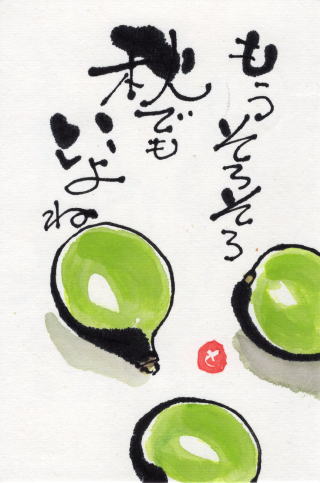 もうそろそろ
秋でも
いいよ
ね
さ